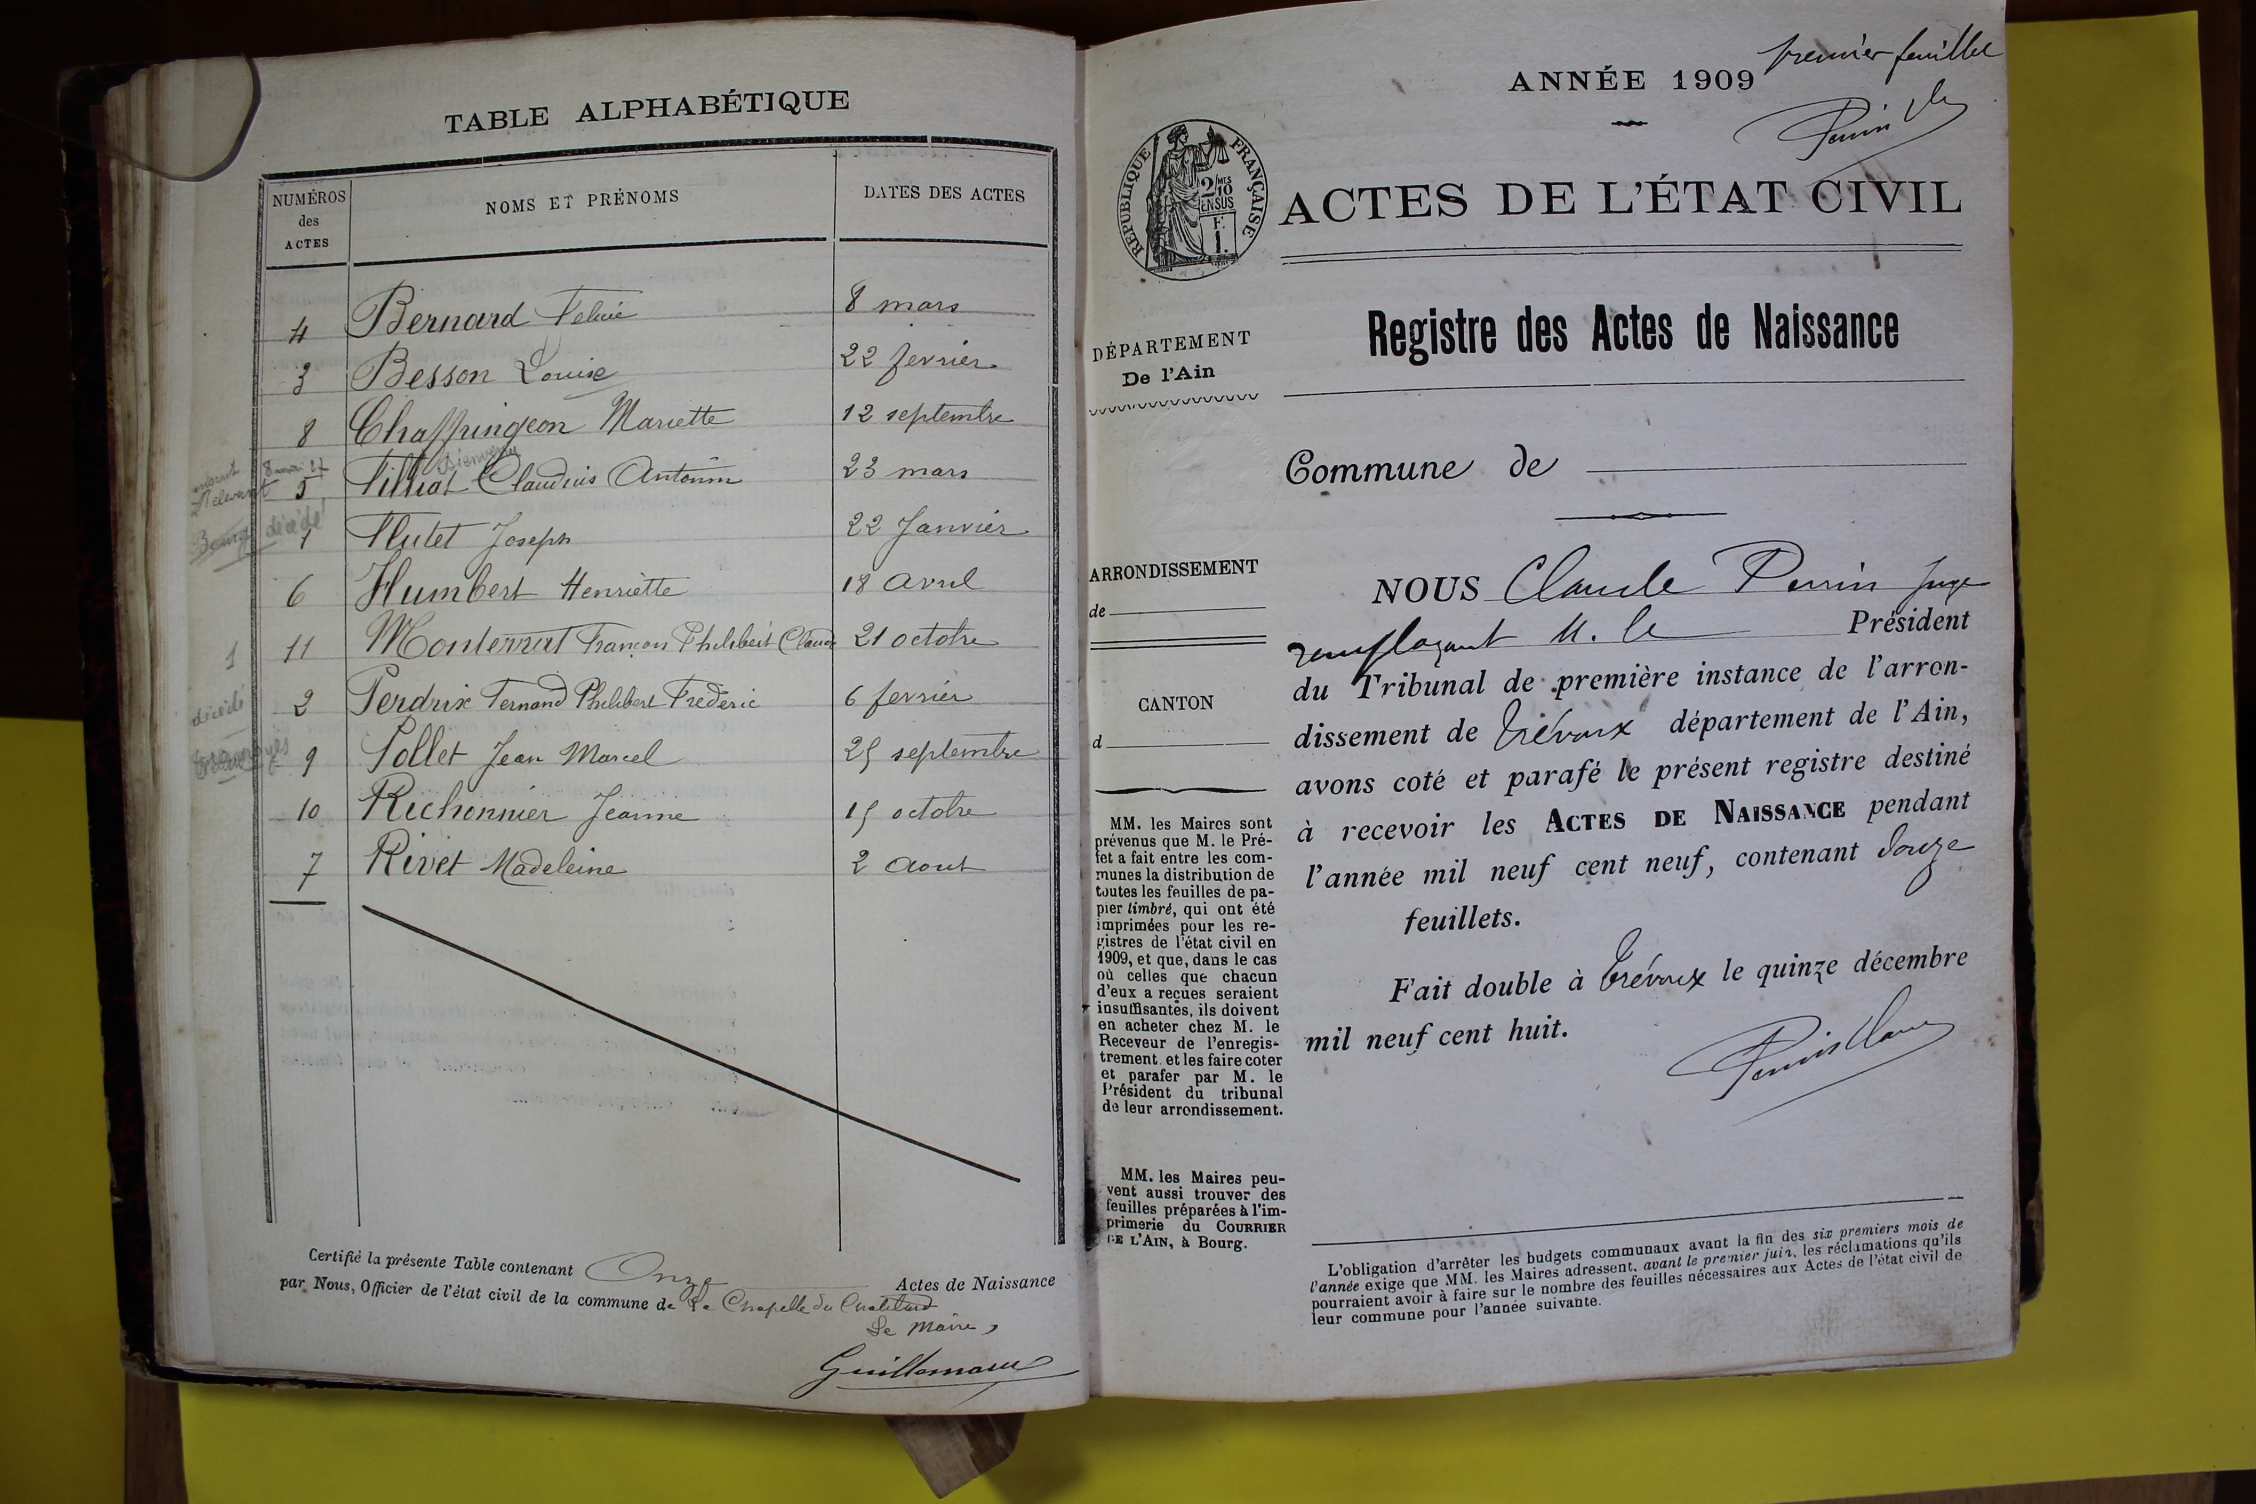 TABLE ALPHABÉTIQUE
NUMÉROS des ACTES
NOMS ET PRÉNOMS
DATES DES ACTES
4 Bernard 8 mars
3 Besson Louise 22 fevrier
8 Chaffringeon Mariette 12 septembre
Bienvenu
8 mai 27
5 Filliat Claudius Antonin 23 mars
Bourg décédé
1 Flutet Joseph 22 Janvier
6 Humbert Henriette 18 avril
1 11 Monterrat François Philibert Claude 21 octobre
décédé 2 Perdrix Fernand Philibert Frédéric 6 fevrier
9 Pollet Jean Marcel 25 septembre
10 Richonnier Jeanne 15 octobre
7 Rivet Madeleine 2 aout
Certifié la présente Table contenant Onze Actes de Naissance
par Nous, Officier de l'état civil de la commune de La Chapelle du Chatelard
Le Maire,
premier feuillet
ANNÉE 1909
RÉPUBLIQUE FRANÇAISE
2/MES 10 EN SUS
F. 1.
ACTES DE L'ÉTAT CIVIL
Registre des Actes de Naissance
DÉPARTEMENT
De l'Ain
Commune de
ARRONDISSEMENT
de
CANTON
d
NOUS Claude Perrin Juge
remplaçant M. le Président
du Tribunal de première instance de l'arron-
dissement de Trévoux département de l'Ain,
avons coté et parafé le présent registre destiné
à recevoir les ACTES DE NAISSANCE pendant
l'année mil neuf cent neuf, contenant douze
feuillets.
Fait double à Trévoux le quinze décembre
mil neuf cent huit.
MM. les Maires sont
prévenus que M. le Pré-
fet a fait entre les com-
munes la distribution de
toutes les feuilles de pa-
pier timbré, qui ont été
imprimées pour les re-
gistres de l'état civil en
1909, et que, dans le cas
où celles que chacun
d'eux a reçues seraient
insuffisantes, ils doivent
en acheter chez M. le
Receveur de l'enregis-
trement et les faire coter
et parafer par M. le
Président du tribunal
de leur arrondissement.
MM. les Maires peu-
vent aussi trouver des
feuilles préparées à l'im-
primerie du COURRIER
DE L'AIN, à Bourg.
L'obligation d'arrêter les budgets communaux avant la fin des six premiers mois de
l'année exige que MM. les Maires adressent, avant le premier juin, les réclamations qu'ils
pourraient avoir à faire sur le nombre des feuilles nécessaires aux Actes de l'état civil de
leur commune pour l'année suivante.